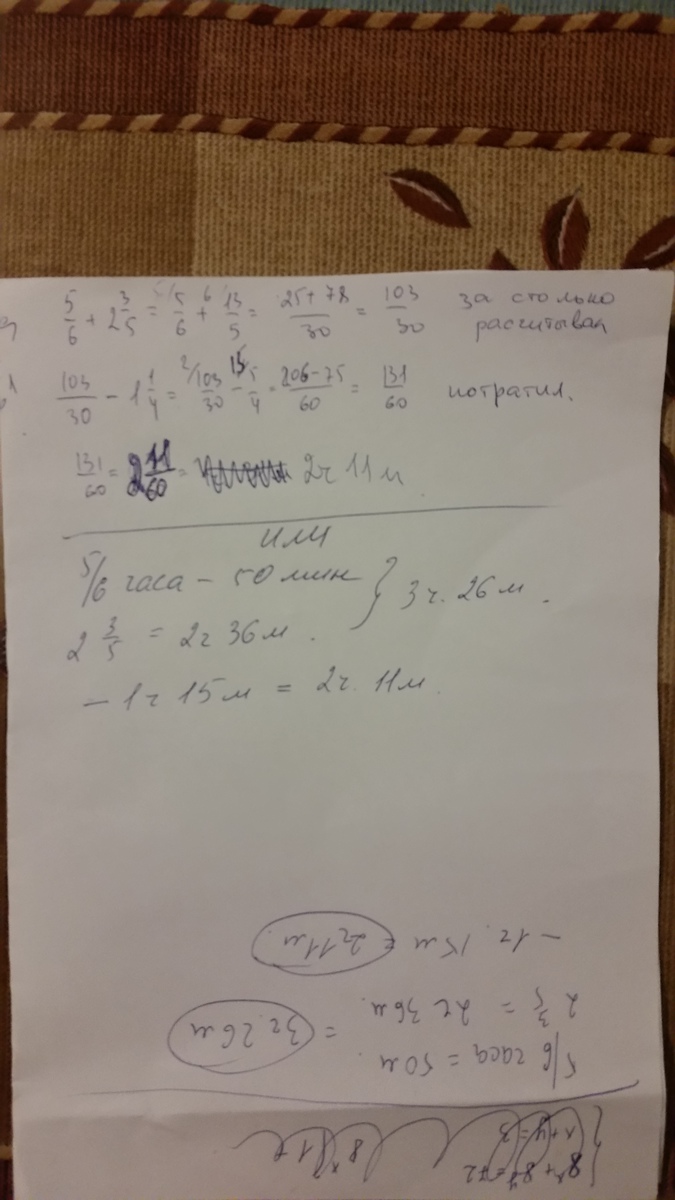 5/6 + 2 3/5 = 5/ 5/6 + 6/ 13/5 = (25+78)/30 = 103/30 за столько
расчитывал
103/30 - 1 1/4 = 2/ 103/30 - 15/ 5/4 = (206-75)/60 = 131/60 потратил.
131/60 = 2 11/60 = 2ч 11м
или
5/6 часа - 50 мин } 3 ч. 26 м.
2 3/5 = 2ч 36м.
- 1ч 15м = 2ч. 11м.
- 1ч. 15м = 2ч 11м.
2 3/5 = 2ч 36м.
= 3ч. 26м
5/6 часа = 50м.
{ x+y=3
8ˣ+8ʸ=72